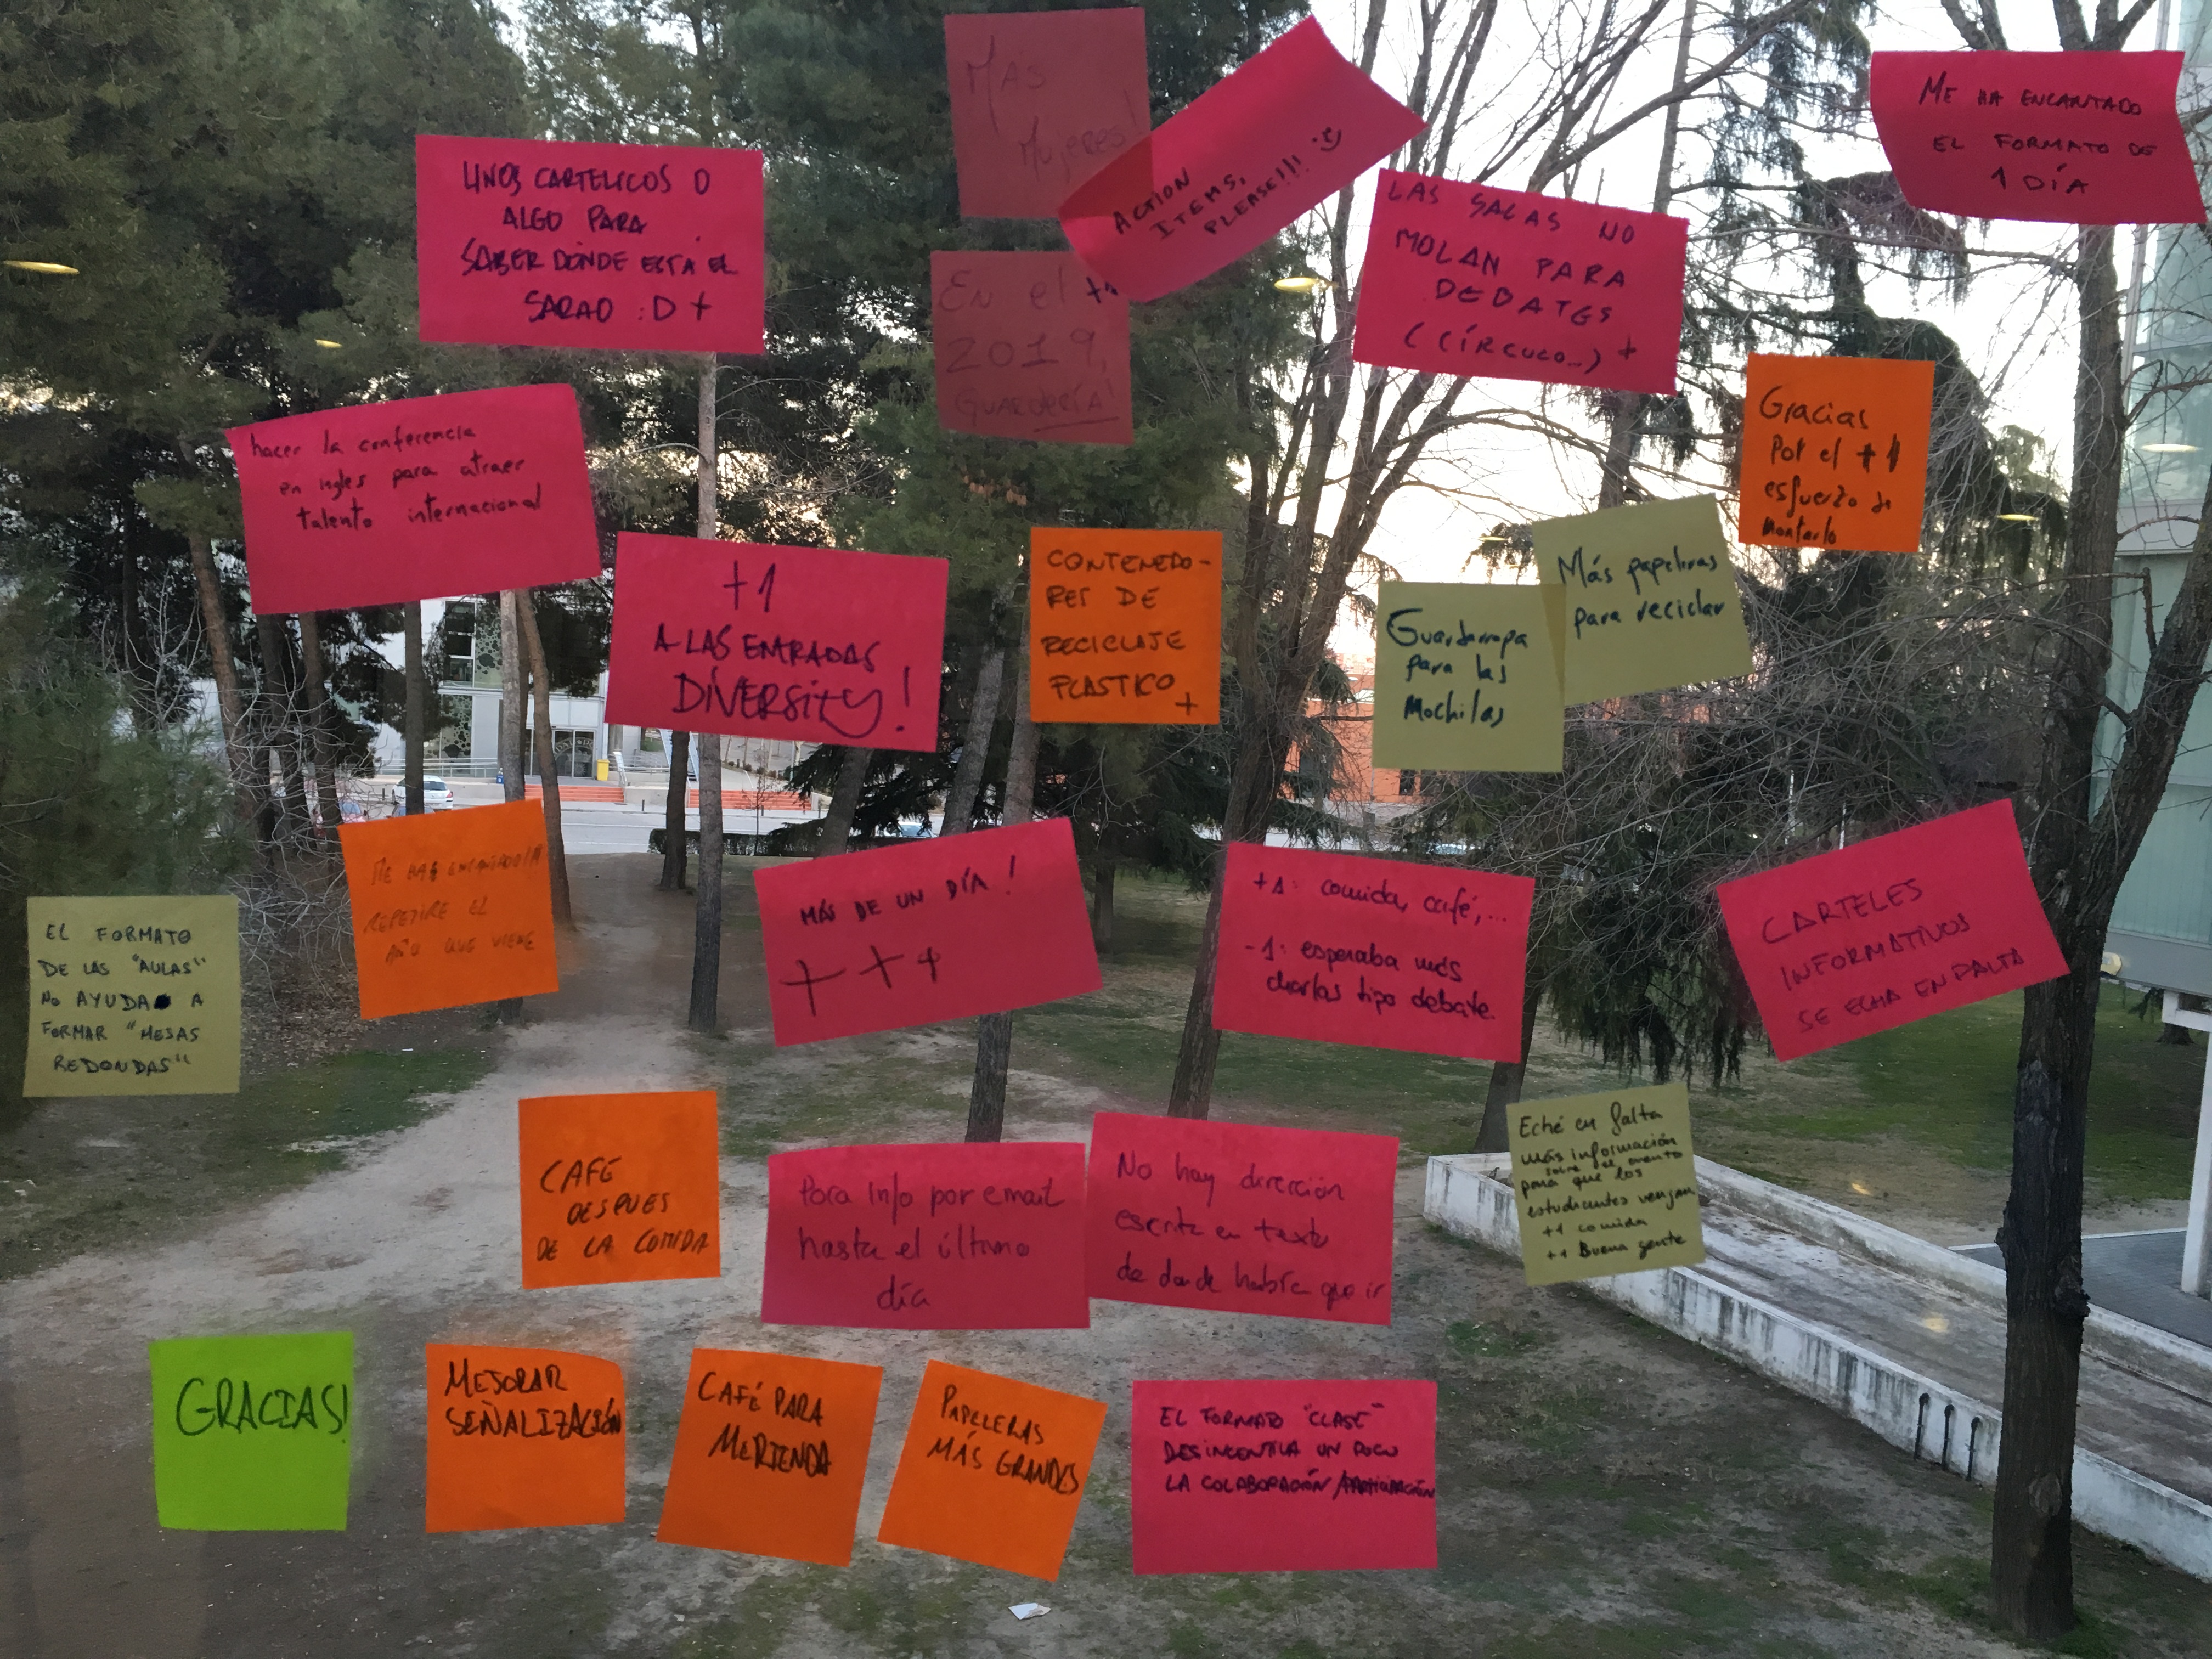 MÁS
Mujeres!
ACTION
ITEMS,
PLEASE!!! :)
ME HA ENCANTADO
EL FORMATO DE
1 DÍA
UNOS CARTELICOS O
ALGO PARA
SABER DÓNDE ESTÁ EL
SARAO :D +
En el +1
2019,
GUARDERÍA!
LAS SALAS NO
MOLAN PARA
DEBATES
(CÍRCULO...) +
Gracias
Por el +1
esfuerzo de
montarlo
hacer la conferencia
en ingles para atraer
talento internacional
+1
A LAS ENTRADAS
DIVERSITY!
CONTENEDO-
RES DE
RECICLAJE
PLASTICO +
Guardarropa
para las
Mochilas
Más papeleras
para reciclar
EL FORMATO
DE LAS "AULAS"
NO AYUDA A
FORMAR "MESAS
REDONDAS"
ME HA ENCANTADO!!
REPETIRE EL
AÑO QUE VIENE
MÁS DE UN DÍA!
+++
+1: comida, café,...
-1: esperaba más
charlas tipo debate.
CARTELES
INFORMATIVOS
SE ECHA EN FALTA
CAFÉ
DESPUES
DE LA COMIDA
Poca info por email
hasta el último
día
No hay dirección
escrita en texto
de donde habría que ir
Eché en falta
más información
sobre el evento
para que los
estudiantes vengan
+1 comida
+1 Buena gente
GRACIAS!
MEJORAR
SEÑALIZACIÓN
CAFÉ PARA
MERIENDA
PAPELERAS
MÁS GRANDES
EL FORMATO "CLASE"
DESINCENTIVA UN POCO
LA COLABORACIÓN/PARTICIPACIÓN